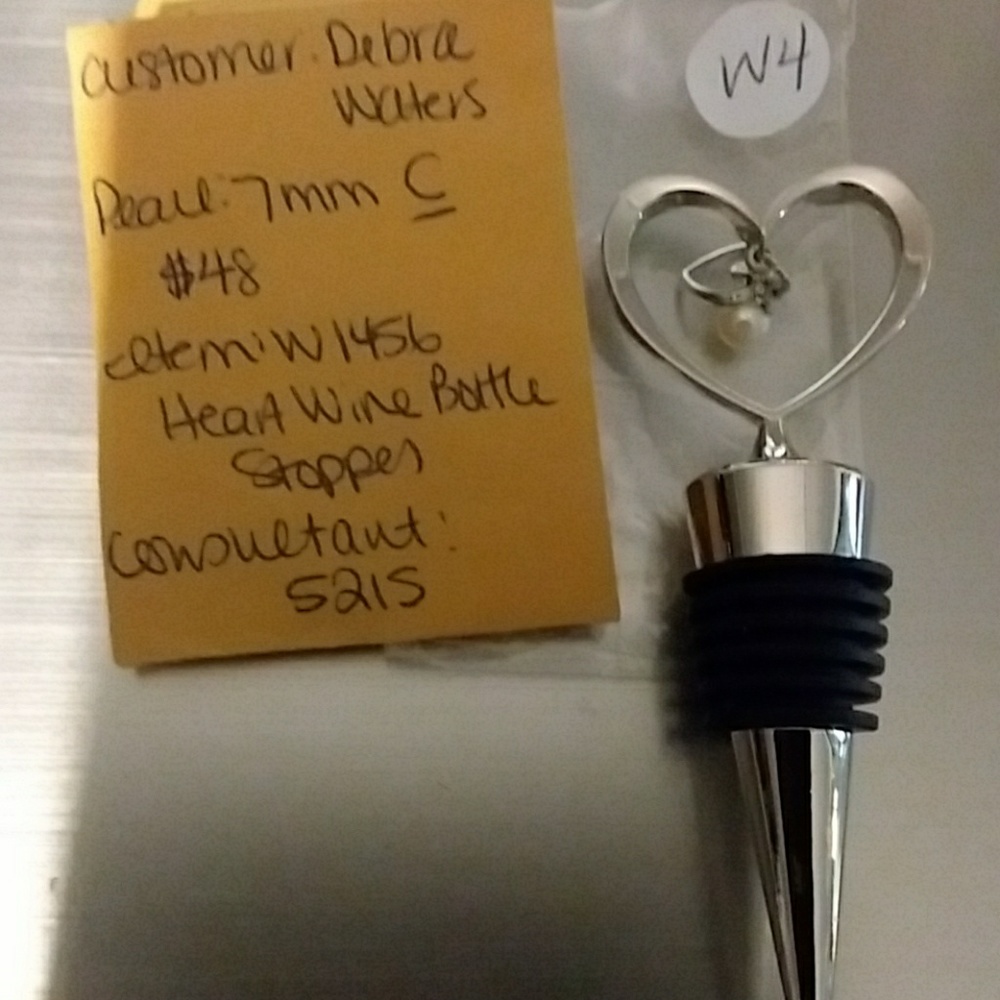 Customer: Debra
Waters
Pearl: 7mm C
$48
Item: W1456
Heart Wine Bottle
Stopper
Consultant:
5215
W4